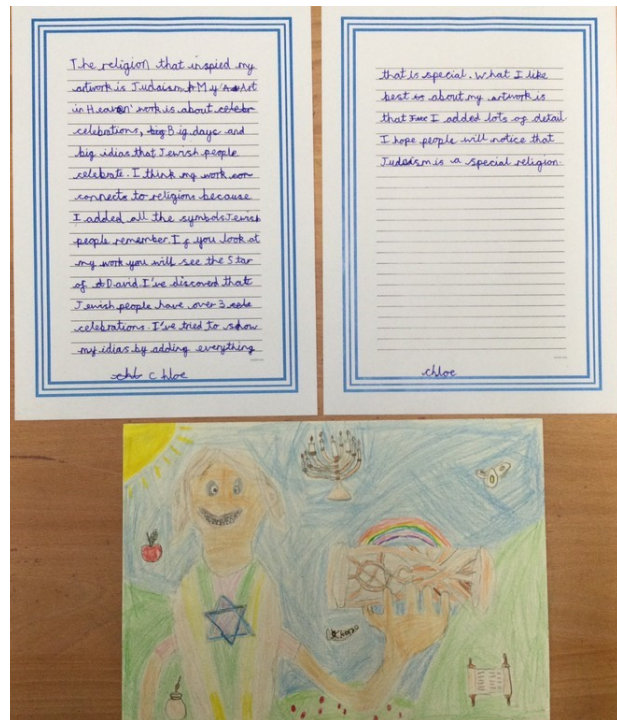 The religion that inspied my
artwork is Judaism. My 'Art
in Heaven' work is about celebr
celebrations, big Big days and
big idias that Jewish people
celebrate. I think my work con
connects to religions because
I added all the symbols Jewish
people remember. If you look at
my work you will see the Star
of David. I've discoverd that
Jewish people have over 3
celebrations. I've tried to show
my idias by adding everything
chl Chloe
that is special. What I like
best is about my artwork is
that I added lots of detail
I hope people will notice that
Judaism is a special religion.
chloe